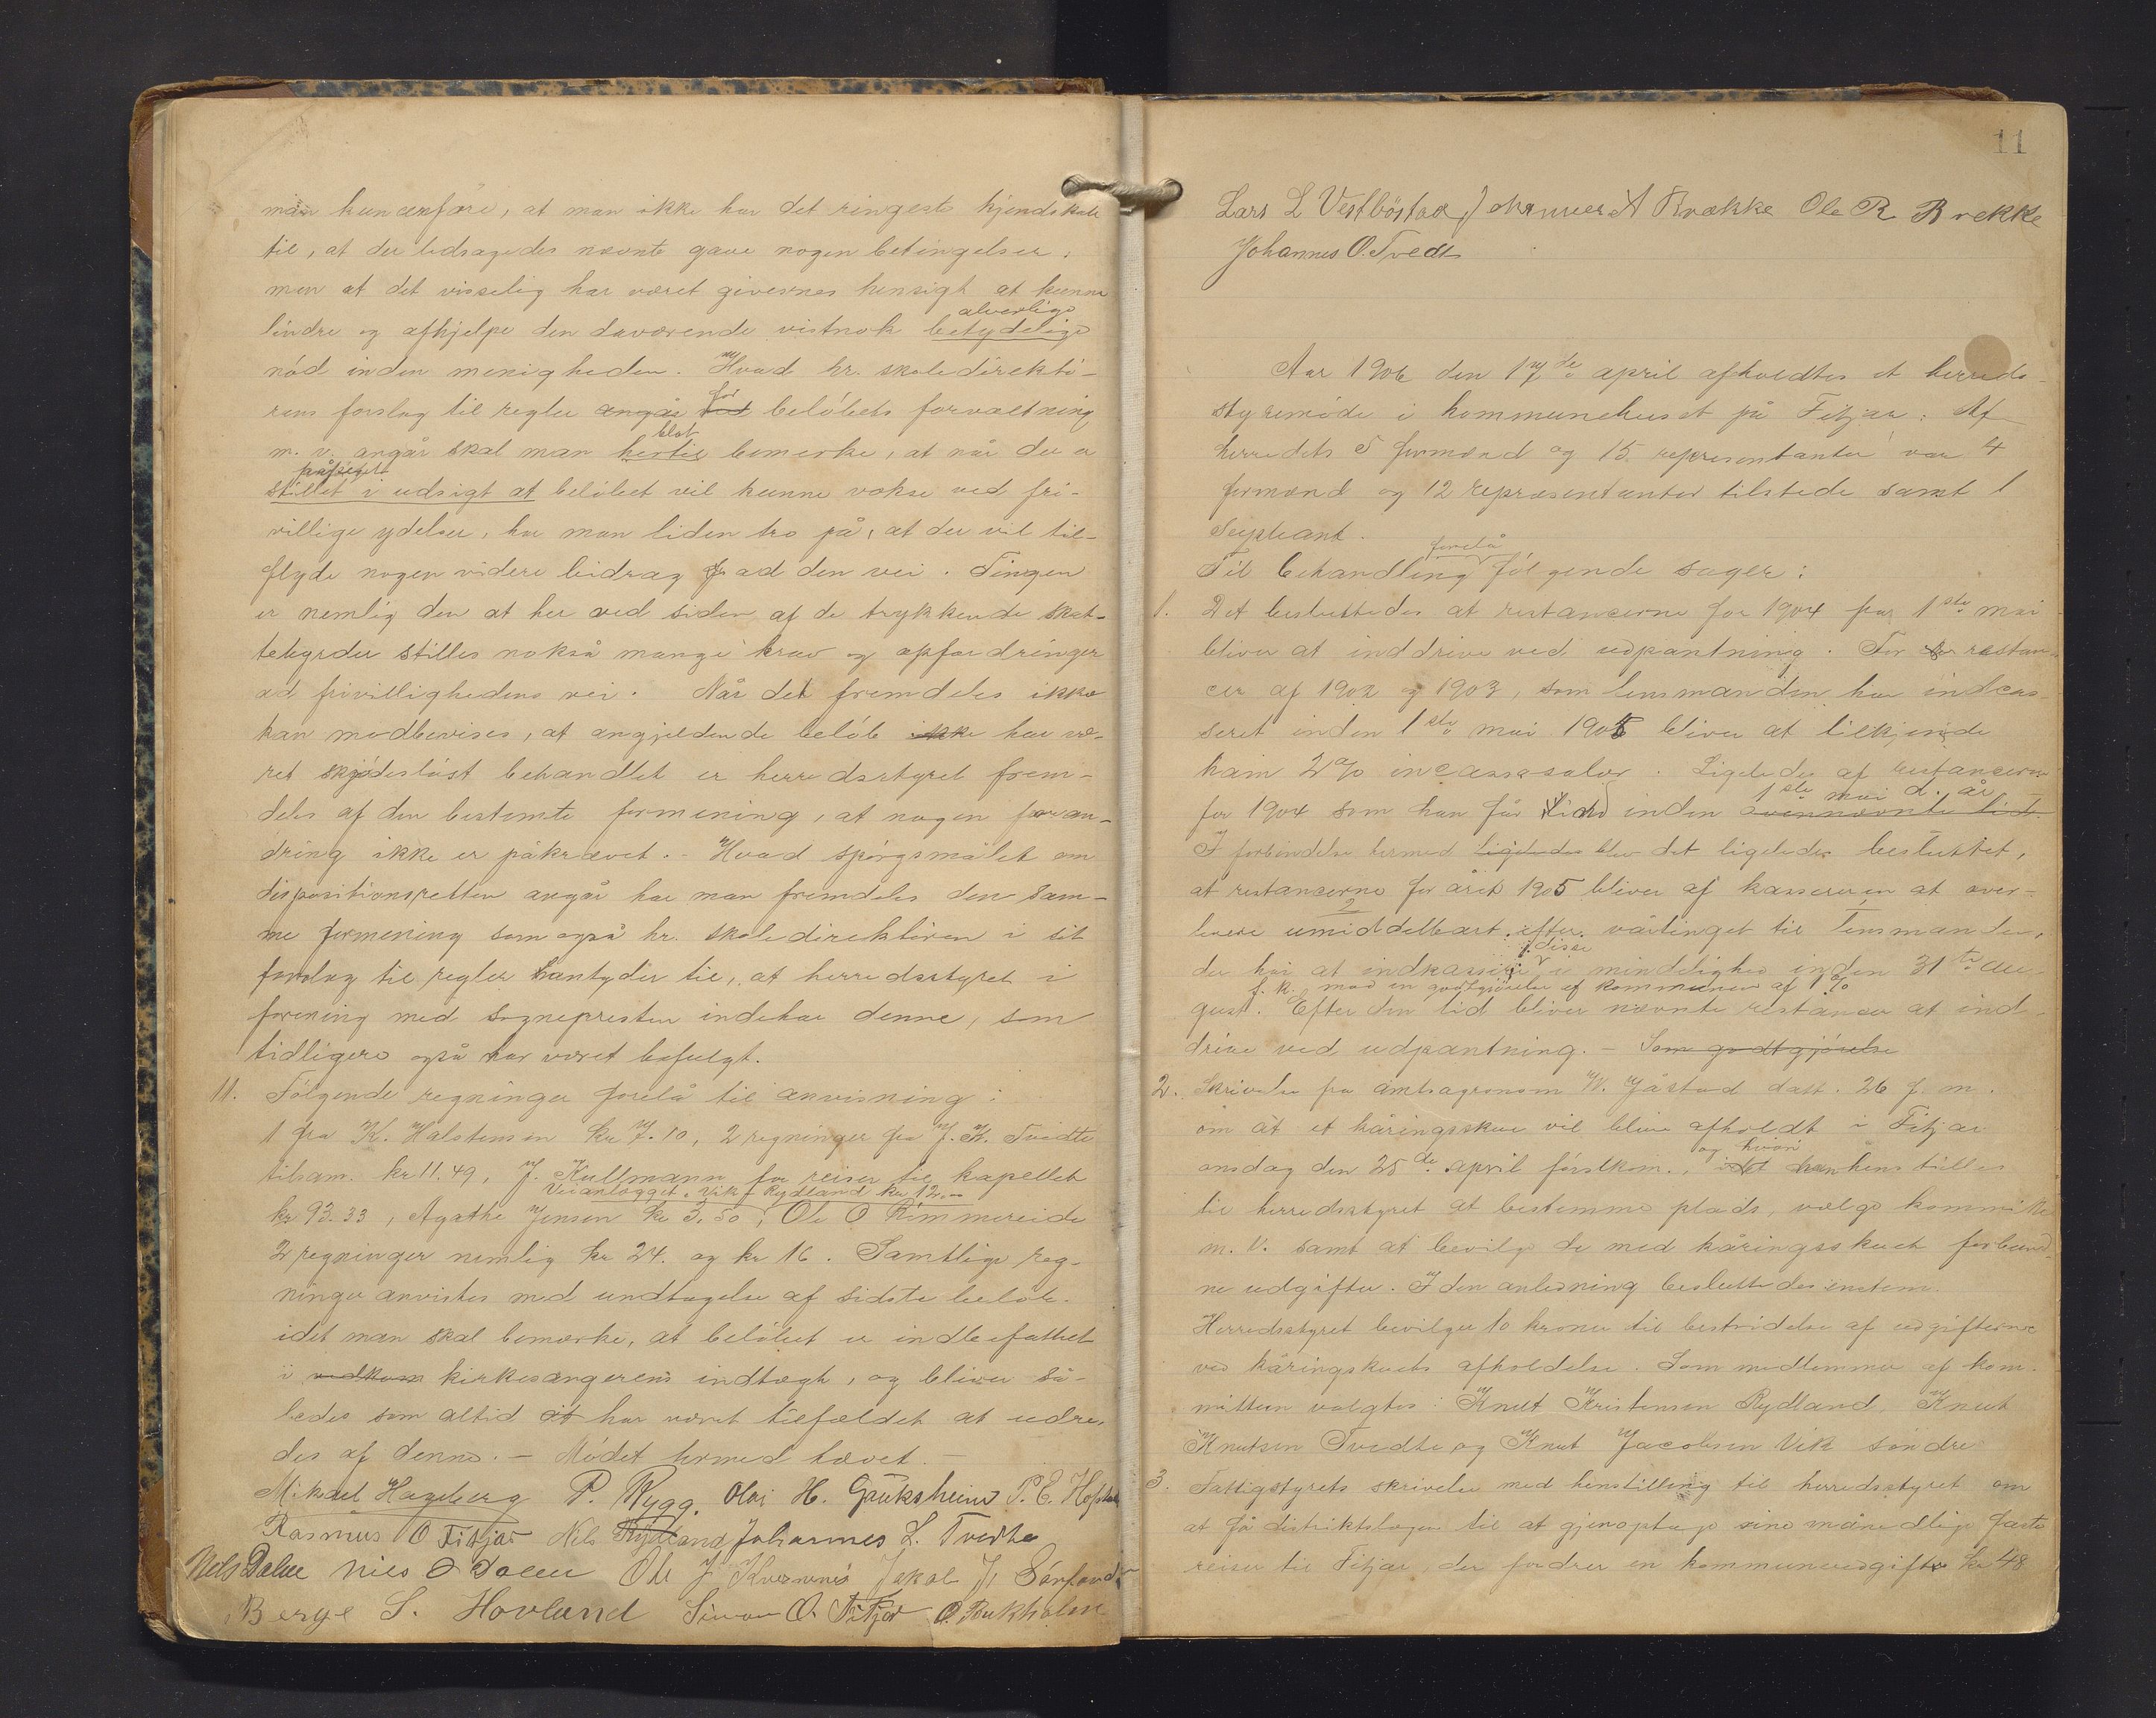 man kun anføre, at man ikke har det ringeste kjendskab
til, at der ledsagedes nævnte gave nogen betingelser,
men at det visselig har været givernes hensigt at kunne
alvorlige
lindre og afhjelpe den daværende vistnok betydelige
nød inden menigheden. Hvad hr. skoledirektø-
for
rens forslag til regler angår beløbets forvaltning
blot
m. v. angår skal man hertil bemerke, at når der er
påpeget
stillet i udsigt at beløbet vil kunne vokse ved fri-
villige ydelser, har man liden tro på, at der vil til-
flyde nogen videre bidrag ad den vei. Tingen
er nemlig den at her ved siden af de trykkende skat-
tebyrder stilles nokså mange krav og opfordringer
ad frivillighedens vei. Når det fremdeles ikke
kan modbevises, at angjeldende beløb ikke har væ-
ret skjødesløst behandlet er herredsstyret frem-
deles af den bestemte formening, at nogen foran-
dring ikke er påkrævet. - Hvad spørgsmålet om
dispositionsretten angår har man fremdeles den sam-
me formening som også hr. skoledirektøren i sit
forslag til regler hentyder til, at herredsstyret i
forening med sognepresten indehar denne, som
tidligere også har været befulgt.
11. Følgende regninger forelå til anvisning:
1 fra K. Halstensen kr 7.10, 2 regninger fra J. K. Tvedte
tilsam. kr 11.49, J. Kullmann for reiser til kapellet
Veianlægget Vik - Rydland kr 12.00
kr 93.33, Agathe Jensen kr 3,50, Ole O Rimmereide
2 regninger nemlig kr 24. og kr 16. Samtlige reg-
ninger anvistes med undtagelse af sidste beløb.
idet man skal bemærke, at beløbet er indbefattet
i vedkom kirkesangerens indtægt, og bliver så-
ledes som altid har været tilfældet at udre-
des af denne. - Mødet hermed hævet. -
Mikael Hageberg P. Rygg. Olai H. Gauksheim P. E. Hofsta
Rasmus O Fitjar Nils Rydland Johannes L. Tvedte
Nels Dalen Nils O Dalen Ole J Kvernenes Jakob J. Sørfonde
Berge S. Hovland Simon O. Fitjar O. Bukholm
11
Lars L Vestbøstad Johannes A Brække Ole R Brekke
Johannes O. Tvedt
Aar 1906 den 17de april afholdtes et herreds-
styremøde i kommunehuset på Fitjar. Af
herredets 5 formænd og 15 representanter var 4
formænd og 12 repræsentanter tilstede samt 1
Supleant.
forelå
Til behandling følgende sager:
1. Det besluttedes at restancerne for 1904 fra 1ste mai
bliver at inddrive ved udpantning. For restan-
cer af 1902 og 1903, som lensmanden har indcas-
seret inden 1ste mai 1905 bliver at tilkjende
ham 2% incassosalær. Ligeledes af restancerne
1ste mai d. år
for 1904 som han får ind inden ovennævnte tid.
I forbindelse hermed ligeledes blev det ligeledes besluttet,
at restancerne for året 1905 bliver af kassereren at over-
levere umiddelbart efter vårtinget til lensmanden,
disse
der har at indkassere i mindelighed inden 31te au-
s. k. mod en godtgjørelse af kommunen af 1%
gust. Efter den tid bliver nævnte restancer at ind-
drive ved udpantning. - Som godtgjørelse
2. Skrivelse fra amtsagronom W. Jåstad datt. 26 f. m.
om at et kåringsskue vil blive afholdt i Fitjar
og hvori
onsdag den 25de april førstkom., idet han henstilles
til herredsstyret at bestemme plads, vælge kommitte
m. v. samt at bevilge de med kåringsskuet forbund-
ne udgifter. I den anledning besluttedes enstem.
Herredsstyret bevilger 10 kroner til bestridelse af udgifterne
ved kåringskuets afholdelse. Som medlemmer af kom-
mitteen valgtes: Knut Kristensen Rydland, Knut
Knutsen Tvedte og Knut Jacobsen Vik søndre
3. Fattigstyrets skrivelse med henstilling til herredsstyret om
at få distriktslægen til at gjenoptage sine månedlige faste
reiser til Fitjar, der fordrer en kommuneudgift kr 48